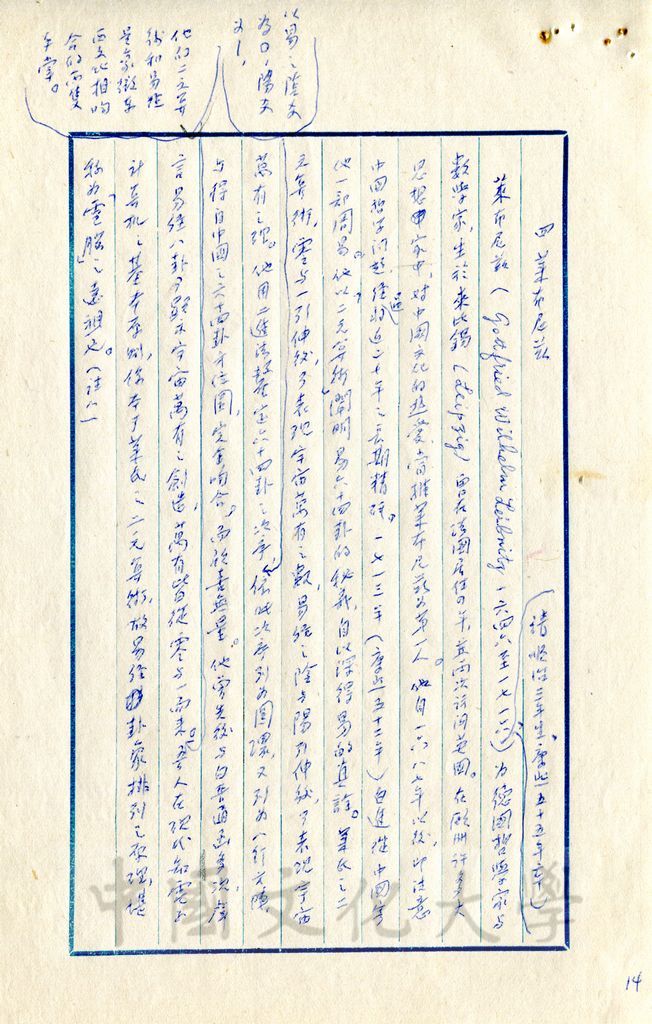 四、萊布尼茲
萊布尼茲(Gottfried Wilhelm Leibnitz, 一六四六至一七一六)為德國哲學家与
(清順治三年生,康熙五十五年卒)
數學家,生於來比錫(Leipzig)曾在法國居住四年,並兩次訪問英國。在歐洲許多大
思想家中,對中國文化的热愛,當推萊布尼茲為第一人。他自一六八七年以後,即注意
中國哲学问題,經過將近二十年之長期精研。一七一三年(康熙五十二年)白進從中國寄
他一部周易。他以二元算術闡明易六十四卦的秘藏,自以深得易的真詮。萊氏之二
元算術,零与一引伸終可表現宇宙萬有之數,易經之陰与陽引伸終可表現宇宙
萬有之理。他用二進法整定六十四卦之次序,依此次序列為圓環,又列為八行方陣
以易之陰爻
為0,陽爻
為1,
与得自中國之六十四卦方位圖,完全吻合。而欣喜無量。他嘗先後与白晉通函多次
他们二元算
術和易經
是象徵東
西文化相吻
合的两隻
手掌。
言易經八卦可顯示宇宙萬有之創造,萬有皆從零与一而來。吾人在現代知電子
計算机之基本原則,係本于萊氏之二元算術,故易經卦象排列之原理,堪
称為「電腦」之遠祖也。(註八)
14
中國文化大學